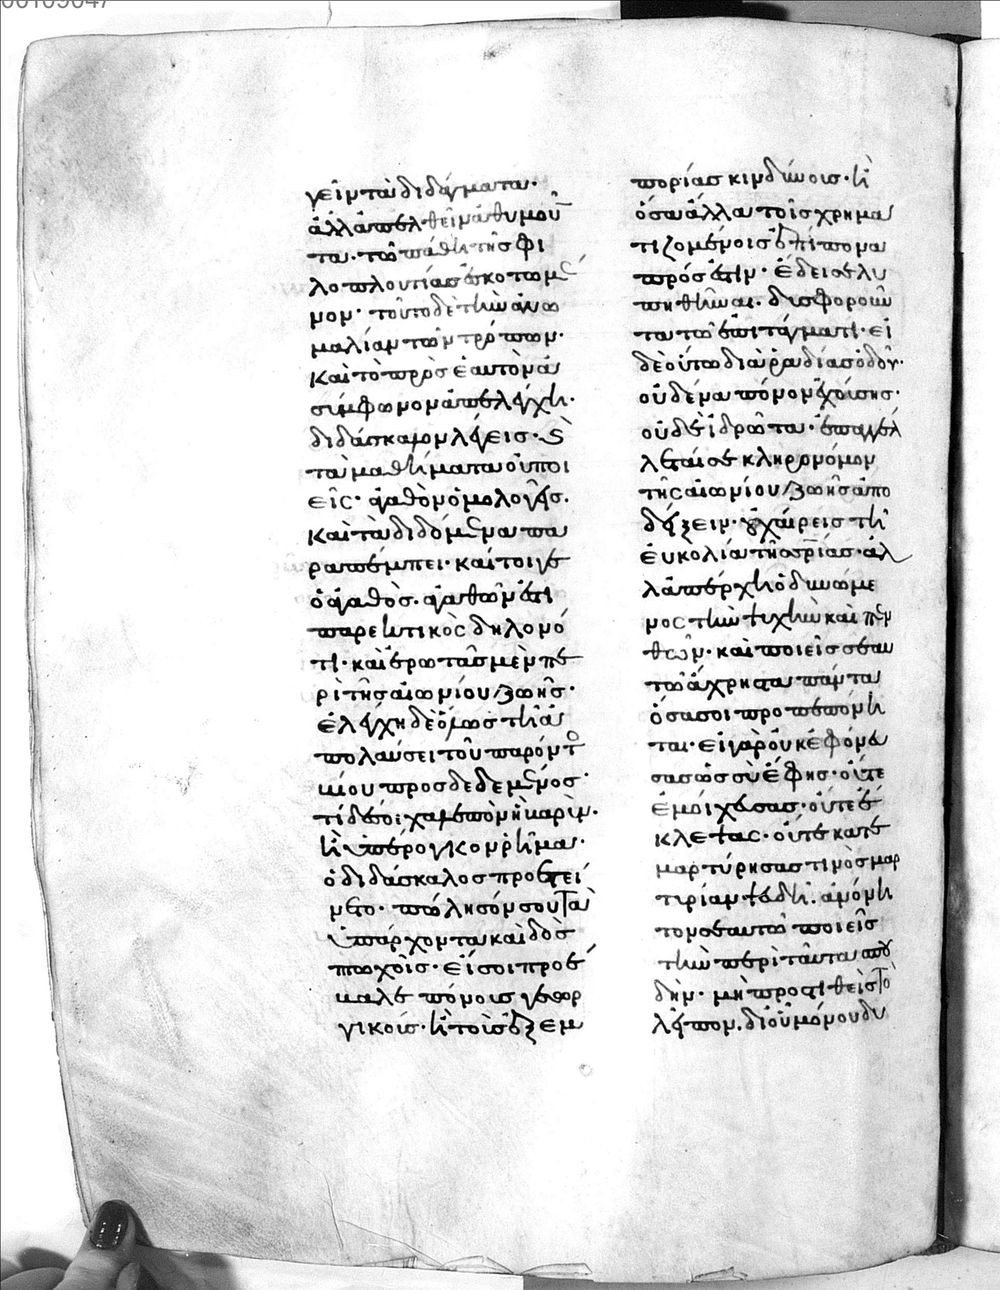 00109047
γεῖν τὰ διδάγματα·
ἀλλ' ἀπελθεῖν ἀθυμοῦν
τα· τῷ πάθει τῆς φι
λοπλουτίας ἐσκοτωμέ
νον· τοῦτο δὲ τὴν ἀνω
μαλίαν τῶν τρόπων·
καὶ τὸ πρὸς ἑαυτὸν ἀ
σύμφωνον ἀπελέγχει·
διδάσκαλον λέγεις· καὶ
τὰ μαθήματα οὐ ποι
εῖς· ἀγαθὸν ὁμολογεῖς·
καὶ τὰ διδόμενα πα
ραπέμπει· καίτοιγε
ὁ ἀγαθὸς· ἀγαθῶν ἐστι
παρεκτικὸς δηλονό
τι· καὶ ἐρωτᾶς μὲν πε
ρὶ τῆς αἰωνίου ζωῆς·
ἐλέγχῃ δὲ ὅλως τῇ ἀ
πολαύσει τοῦ παρόντος
βίου προσδεδεμένος·
τί δέ σοι χαλεπὸν ἢ βαρὺν·
ἢ ὑπέρογκον ῥῆμα·
ὁ διδάσκαλος προετεί
νετο· πώλησόν σου τὰ
ὑπάρχοντα καὶ δὸς
πτωχοῖς· εἴ σοι προέ
βαλε πόνους γεωρ
γικοὺς· ἢ τοὺς ἐξ ἐμ
πορίας κινδύνους· ἢ
ὅσα ἄλλα τοῖς χρημα
τιζομένοις ἐπίπονα
πρόσεστιν· ἔδει σε λυ
πηθῆναι· δυσφοροῦν
τα τῷ ἐπιτάγματι· εἰ
δὲ οὕτω διὰ ῥαδίας ὁδοῦ·
οὐδένα πόνον ἐχούσης·
οὐδὲ ἱδρῶτα· ἐπαγγέλ
λεταί σε κληρονόμον
τῆς αἰωνίου ζωῆς ἀπο
δείξειν· οὐ χαίρεις τῇ
εὐκολίᾳ τῆς σωτηρίας· ἀλ
λ' ἀπέρχῃ ὀδυνώμε
νος τὴν ψυχὴν καὶ πεν
θῶν· καὶ ποιεῖς σεαυ
τῷ ἄχρηστα πάντα
ὅσα σοι προπεπόνη
ται· εἰ γὰρ οὐκ ἐφόνευ
σας ὡς σὺ ἔφης· οὔτε
ἐμοίχευσας· οὔτε ἔ
κλεψας· οὔτε κατε
μαρτύρησάς τινος μαρ
τυρίαν ψευδῆ· ἀνόνη
τον σεαυτῷ ποιεῖς
τὴν περὶ ταῦτα σπου
δὴν· μὴ προστιθεὶς τὸ
λεῖπον· δι' οὗ μόνου δυ